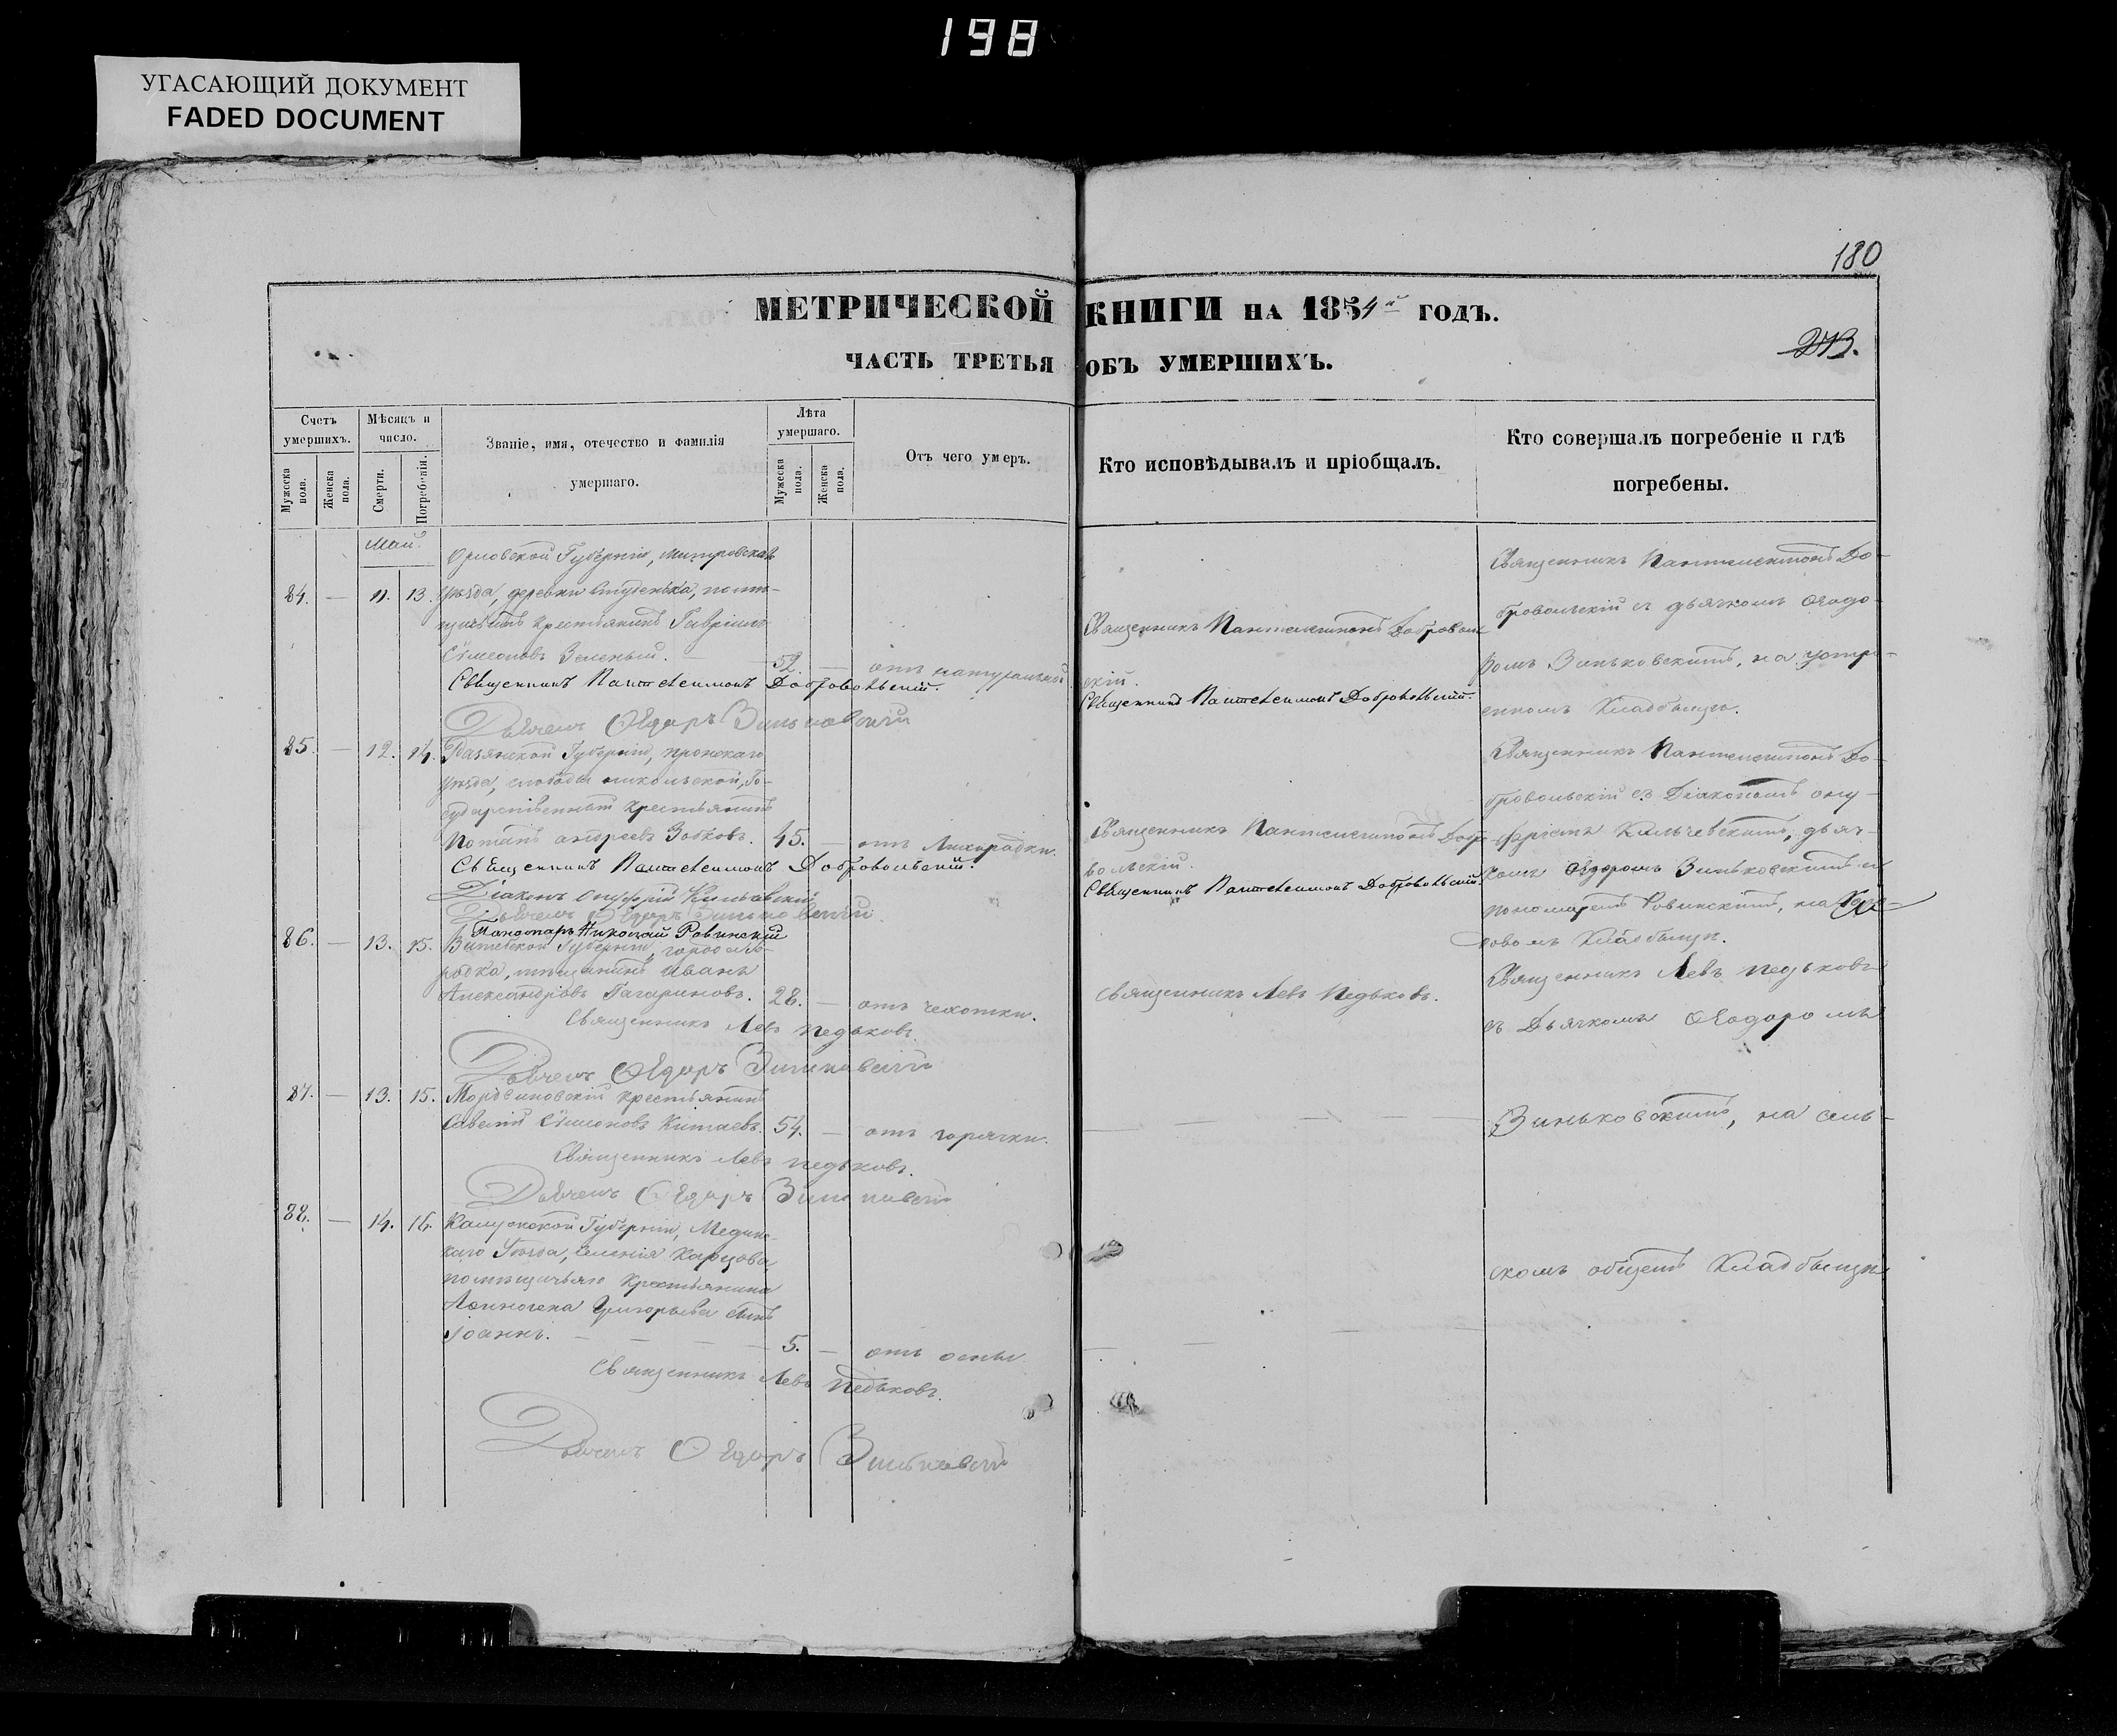 198
УГАСАЮЩИЙ ДОКУМЕНТ
FADED DOCUMENT
180
МЕТРИЧЕСКОЙ КНИГИ НА 1854й ГОДЪ.
213.
ЧАСТЬ ТРЕТЬЯ ОБЪ УМЕРШИХЪ.
Счетъ умершихъ.
Мужеска пола.
Женска пола.
Мѣсяцъ и число.
Смерти.
Погребенія.
Званіе, имя, отечество и фамилія
умершаго.
Лѣта умершаго.
Мужеска пола.
Женска пола.
Отъ чего умеръ.
Кто исповѣдывалъ и пріобщалъ.
Кто совершалъ погребеніе и гдѣ
погребены.
Май.
84. — 11. 13.
Орловской Губерніи,
уѣзда, деревни Студенька, помѣ-
щичьій крестьянинъ Гавріилъ
Сѵмеоновъ Зеленый. — 52. — отъ натуральной
Священникъ Пантелеимонъ Добровольскій.
Дьячекъ Ѳедоръ Зиньковскій
Священникъ Пантелеимонъ Доброволь
скій.
Священникъ Пантелеимонъ Добровольскій.
Священникъ Пантелеимонъ До-
бровольскій съ дьячкомъ Ѳеодо-
ромъ Зиньковскимъ, на устро-
енномъ Кладбищѣ.
85. — 12. 14.
Рязанской Губерніи, Пронскаго
уѣзда, слободы Никольской, Го-
сударственный крестьянинъ
Потапъ Андреевъ Зобковъ. 45. — отъ Лихорадки.
Священникъ Пантелеимонъ Добровольскій.
Діаконъ Онуфрій Кильчевскій
Дьячекъ Ѳедоръ Зиньковскій
Пономаръ Николай Ровинскій
Священникъ Пантелеимонъ Добро
вольскій.
Священникъ Пантелеимонъ Добровольскій.
Священникъ Пантелеимонъ До-
бровольскій съ Діакономъ Ону-
фріемъ Кильчевскимъ, дьяч-
комъ Ѳедоромъ Зиньковскимъ и
пономаремъ Ровинскимъ, на
Кладбищѣ.
86. — 13. 15.
Витебской Губерніи, города
родка, мѣщанинъ Иванъ
Александровъ Гагариновъ. 28. — отъ чехотки.
Священникъ Левъ Педьковъ.
Дьячекъ Ѳедоръ Зиньковскій
Священникъ Левъ Педьковъ.
Священникъ Левъ Педьковъ
съ Дьячкомъ Ѳеодоромъ
87. — 13. 15.
Мордвиновскій крестьянинъ
Савелій Сѵмеоновъ Китаевъ. 54. — отъ горячки.
Священникъ Левъ Педьковъ.
Дьячекъ Ѳедоръ Зиньковскій
Зиньковскимъ, на сель-
88. — 14. 16.
Калужской Губерніи, Медын-
скаго Уѣзда, селенія Карцова
помѣщичьяго крестьянина
Аѳиногена Григорьева сынъ
Іоаннъ. — — — 5. — отъ оспы
Священникъ Левъ Педьковъ.
Дьячекъ Ѳедоръ Зиньковскій
скомъ общемъ Кладбищѣ